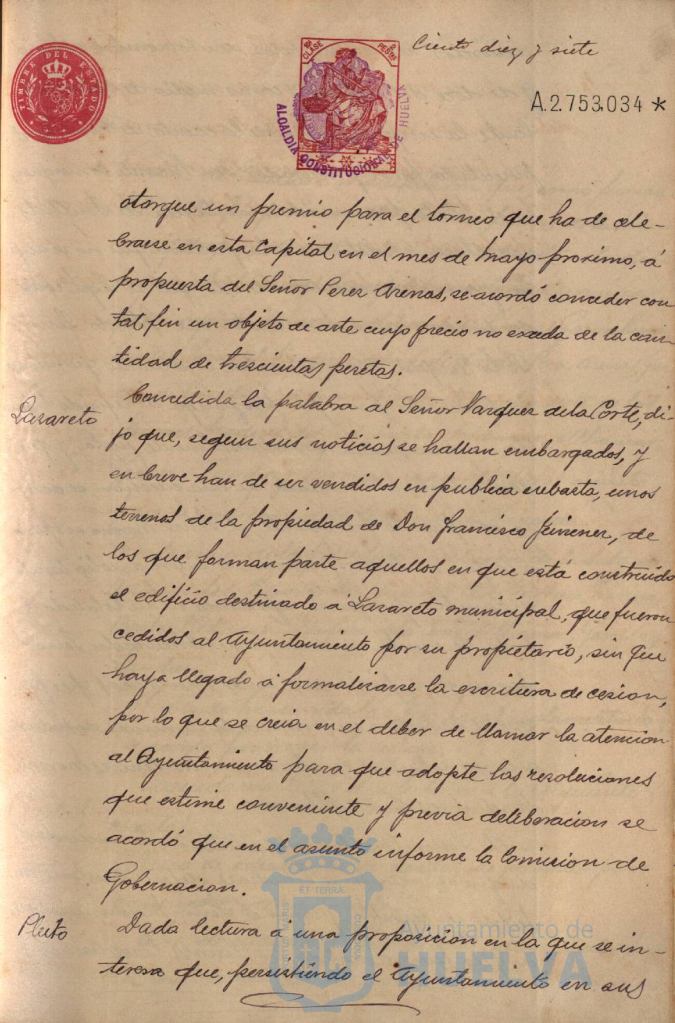 TIMBRE DEL ESTADO
CLASE PESETAS
ALCALDIA CONSTITUCIONAL DE HUELVA
Ciento diez y siete
A.2.753.034 *
otorgue un premio para el torneo que ha de cele-
brarse en esta Capital en el mes de Mayo proximo, á
propuesta del Señor Perez Arenas, se acordó conceder con
tal fin un objeto de arte cuyo precio no exceda de la can-
tidad de trescientas pesetas.
Lazareto
Concedida la palabra al Señor Vazquez de la Corte, di-
jo que, segun sus noticias se hallan embargados, y
en breve han de ser vendidos en publica subasta, unos
terrenos de la propiedad de Don Francisco Jimenez, de
los que forman parte aquellos en que está construido
el edificio destinado á Lazareto municipal, que fueron
cedidos al Ayuntamiento por su propietario, sin que
haya llegado á formalizarse la escritura de cesion,
por lo que se creia en el deber de llamar la atencion
al Ayuntamiento para que adopte las resoluciones
que estime conveniente y previa deliberacion se
acordó que en el asunto informe la Comision de
Gobernacion.
Pleito
Dada lectura á una proposicion en la que se in-
teresa que, persistiendo el Ayuntamiento en sus
ET TERRA
Ayuntamiento de
HUELVA